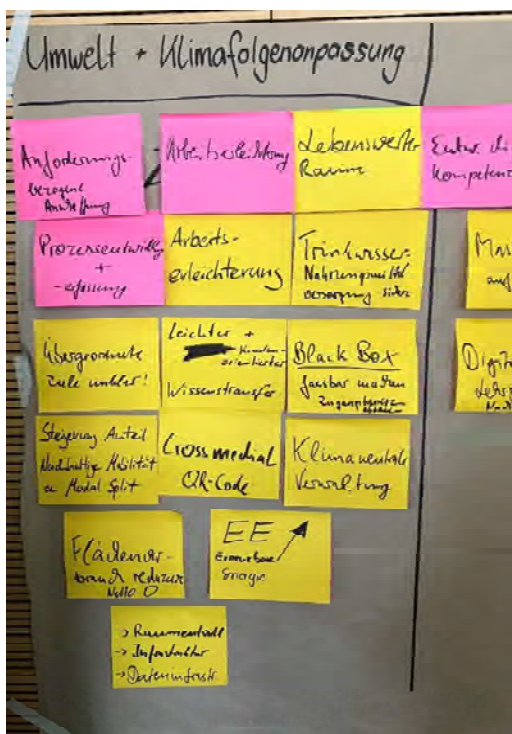 Umwelt + Klimafolgenanpassung
Anforderungs-
bezogene
Arbeitserleichterung
Lebenswerter
Räume
kompetenz
Prozessentwicklg
+
-erfassung
Arbeits-
erleichterung
Trinkwasser-
Nahrungsmittel
versorgung sicher
Übergeordnete
Ziele umbler!
leichter +
Wissenstransfer
Black Box
fassbar machen
Steigerung Anteil
Nachhaltige Mobilität
Modal Split
Crossmedial
QR-Code
Klimaneutrale
Verwaltung
Flächenver-
brauch reduzieren
Netto 0
EE
Erneuerbare
Energie
-> Infrastruktur
-> Dateninfrastr.